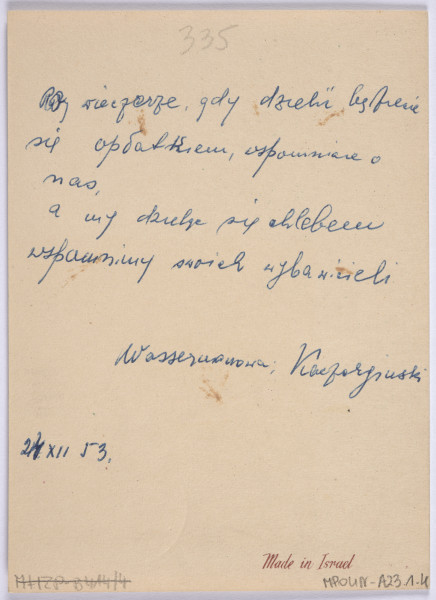 335
Przy wieczerze, gdy dzielić będziecie
się opłatkiem, wspomnijcie o
nas,
a my dzieląc się chlebem
wspomnimy swoich wybawicieli
Wassermanowa, Kaczorginski
24 XII 53.
Made in Israel
MHŻP-B414/4
MPOLIN-A23.1.4